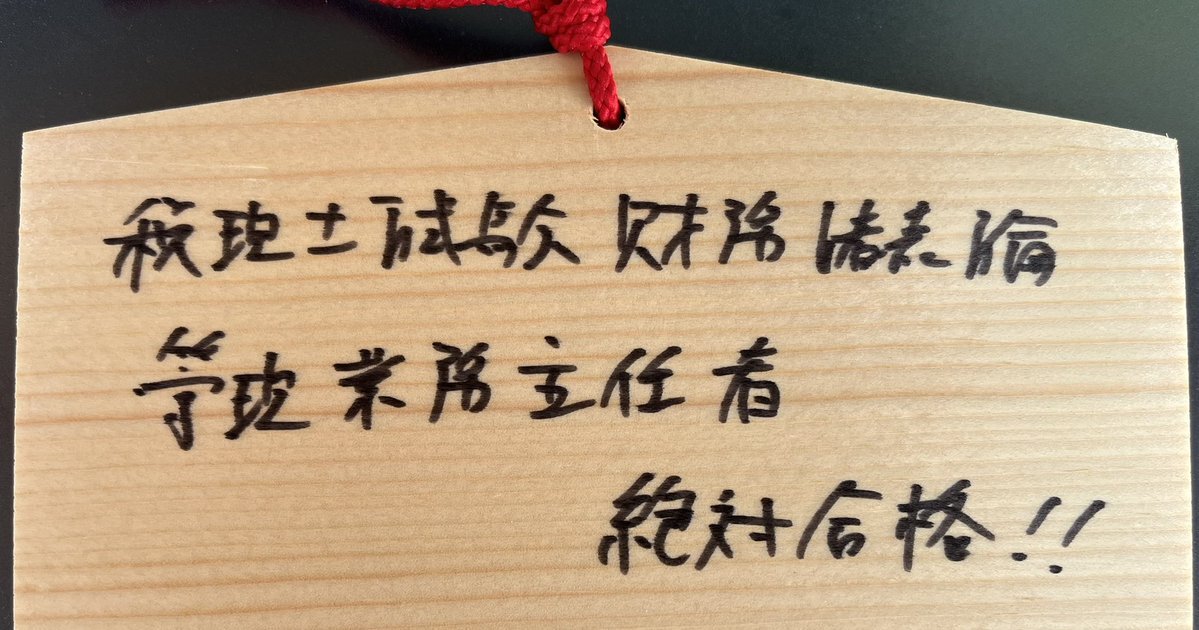 税理士試験 財務諸表論
管理業務主任者
絶対合格!!